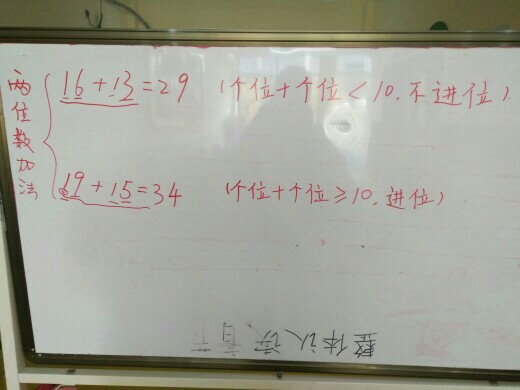 两位数加法
16+13=29 (个位+个位<10,不进位)
19+15=34 (个位+个位≥10,进位)
整体认读、音节